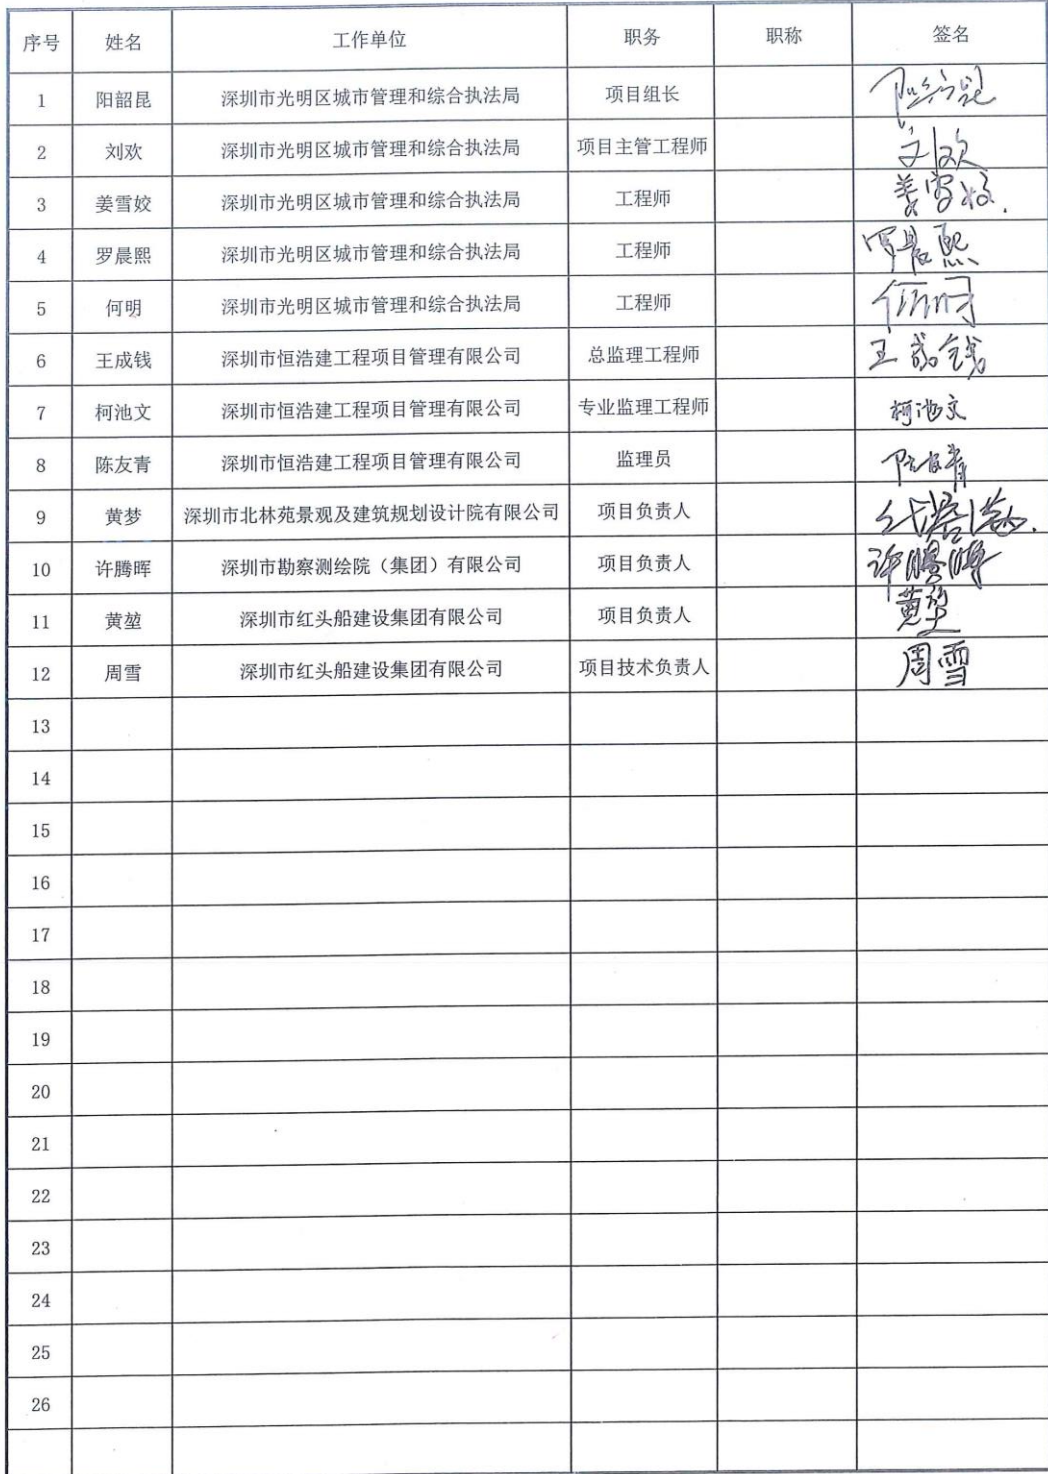 序号 姓名 工作单位 职务 职称 签名
1 阳韶昆 深圳市光明区城市管理和综合执法局 项目组长 阳韶昆
2 刘欢 深圳市光明区城市管理和综合执法局 项目主管工程师 刘欢
3 姜雪姣 深圳市光明区城市管理和综合执法局 工程师 姜雪姣
4 罗晨熙 深圳市光明区城市管理和综合执法局 工程师 罗晨熙
5 何明 深圳市光明区城市管理和综合执法局 工程师 何明
6 王成钱 深圳市恒浩建工程项目管理有限公司 总监理工程师 王成钱
7 柯池文 深圳市恒浩建工程项目管理有限公司 专业监理工程师 柯池文
8 陈友青 深圳市恒浩建工程项目管理有限公司 监理员 陈友青
9 黄梦 深圳市北林苑景观及建筑规划设计院有限公司 项目负责人
10 许腾晖 深圳市勘察测绘院（集团）有限公司 项目负责人 许腾晖
11 黄堃 深圳市红头船建设集团有限公司 项目负责人 黄堃
12 周雪 深圳市红头船建设集团有限公司 项目技术负责人 周雪
13
14
15
16
17
18
19
20
21
22
23
24
25
26